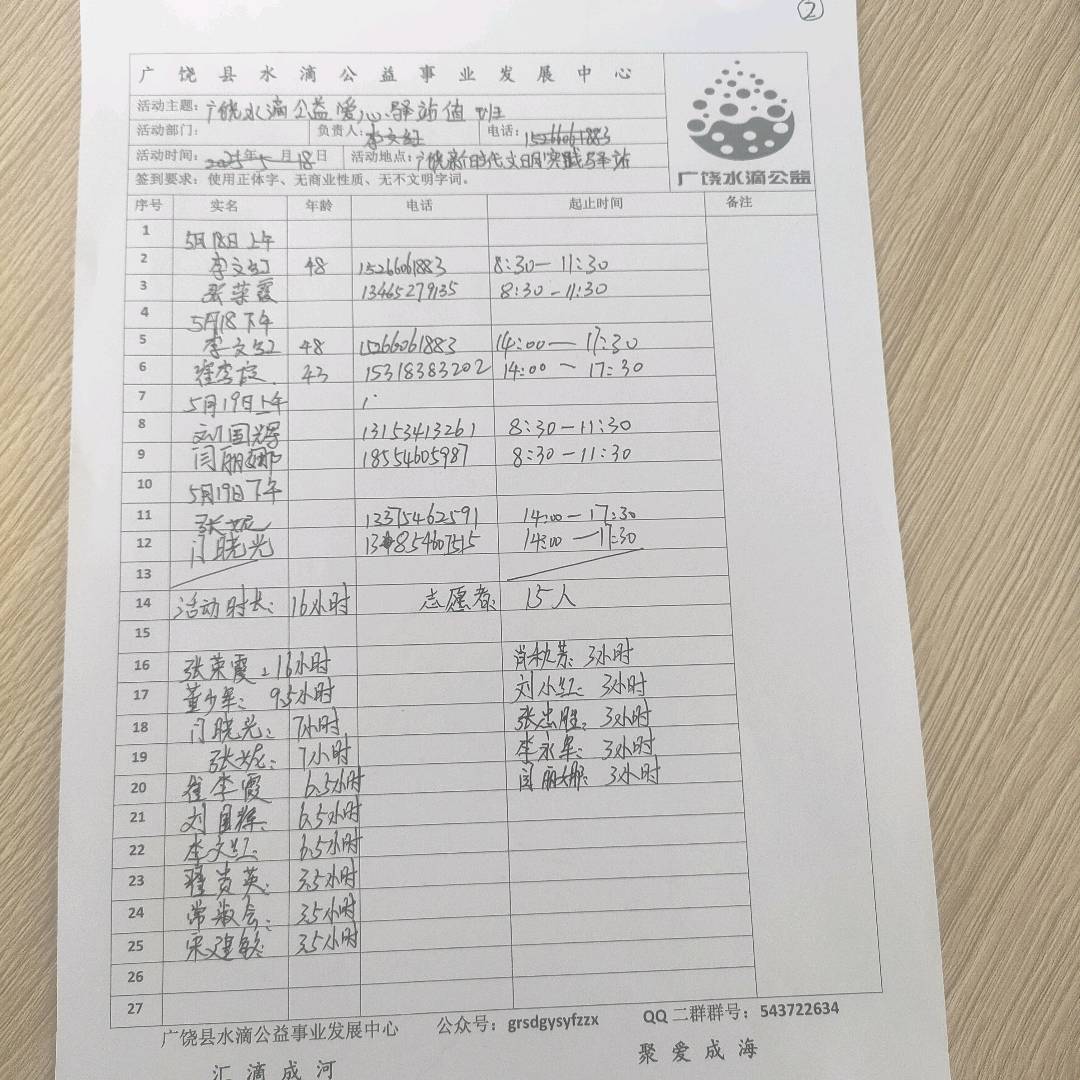 ②
广饶县水滴公益事业发展中心
活动主题：广饶水滴公益爱心驿站值班
活动部门： 负责人：李文红 电话：15266061883
活动时间：2025年5月18日 活动地点：广饶新时代文明实践驿站
签到要求：使用正体字、无商业性质、无不文明字词。
广饶水滴公益
序号 实名 年龄 电话 起止时间 备注
1 5月18日上午
2 李文红 48 15266061883 8:30—11:30
3 张荣霞 13465279135 8:30—11:30
4 5月18下午
5 李文红 48 15266061883 14:00—17:30
6 崔李霞 43 15318383202 14:00—17:30
7 5月19日上午
8 刘国辉 13153413261 8:30—11:30
9 闫丽娜 18554605987 8:30—11:30
10 5月19日下午
11 张妮 13375462591 14:00—17:30
12 门晓光 14:00—17:30
13
14 活动时长：16小时 志愿者：15人
15
16 张荣霞：16小时 肖秋芳：3小时
17 董少军：9.5小时 刘小红：3小时
18 门晓光：7小时 张忠胜：3小时
19 张妮：7小时 李永军：3小时
20 崔李霞 6.5小时 闫丽娜：3小时
21 刘国辉：6.5小时
22 李文红：6.5小时
23 贵英：3.5小时
24 常淑会：3.5小时
25 宋建敏：3.5小时
26
27
广饶县水滴公益事业发展中心 公众号：grsdgysyfzzx QQ二群群号：543722634
汇滴成河 聚爱成海